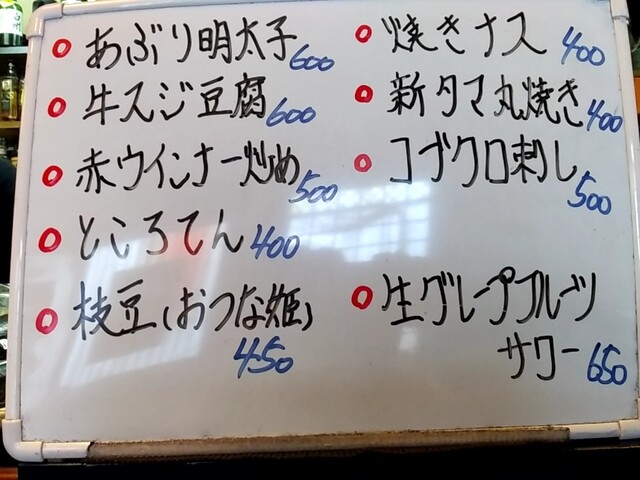 あぶり明太子 600
牛スジ豆腐 600
赤ウインナー炒め 500
ところてん 400
枝豆(おつな姫)
450
焼きナス 400
新タマ丸焼き 400
コブクロ刺し
500
生グレープフルーツ
サワー 650